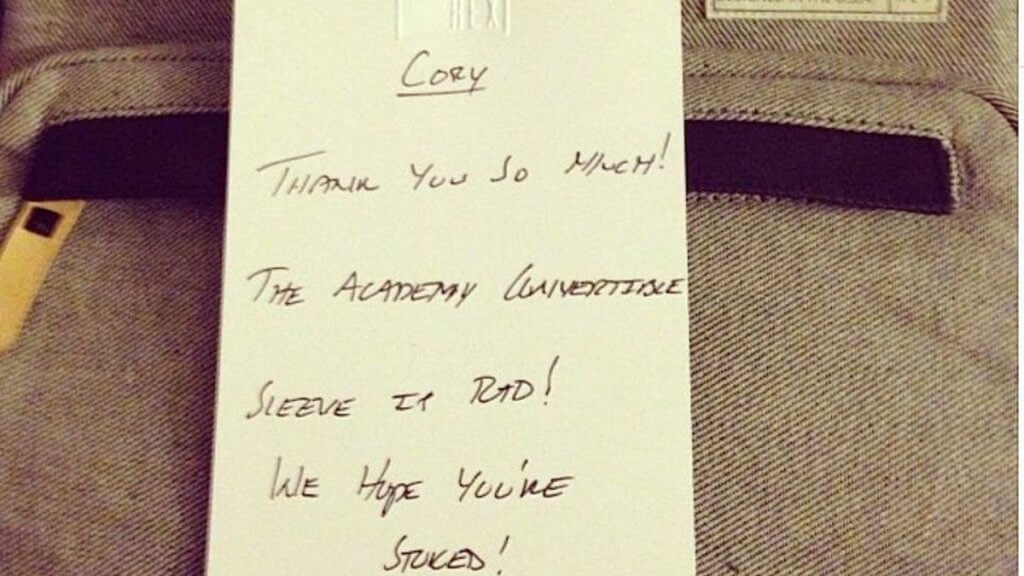 HEX
CORY
THANK YOU SO MUCH!
THE ACADEMY CONVERTIBLE
SLEEVE IS RAD!
WE HOPE YOU'RE
STOKED!